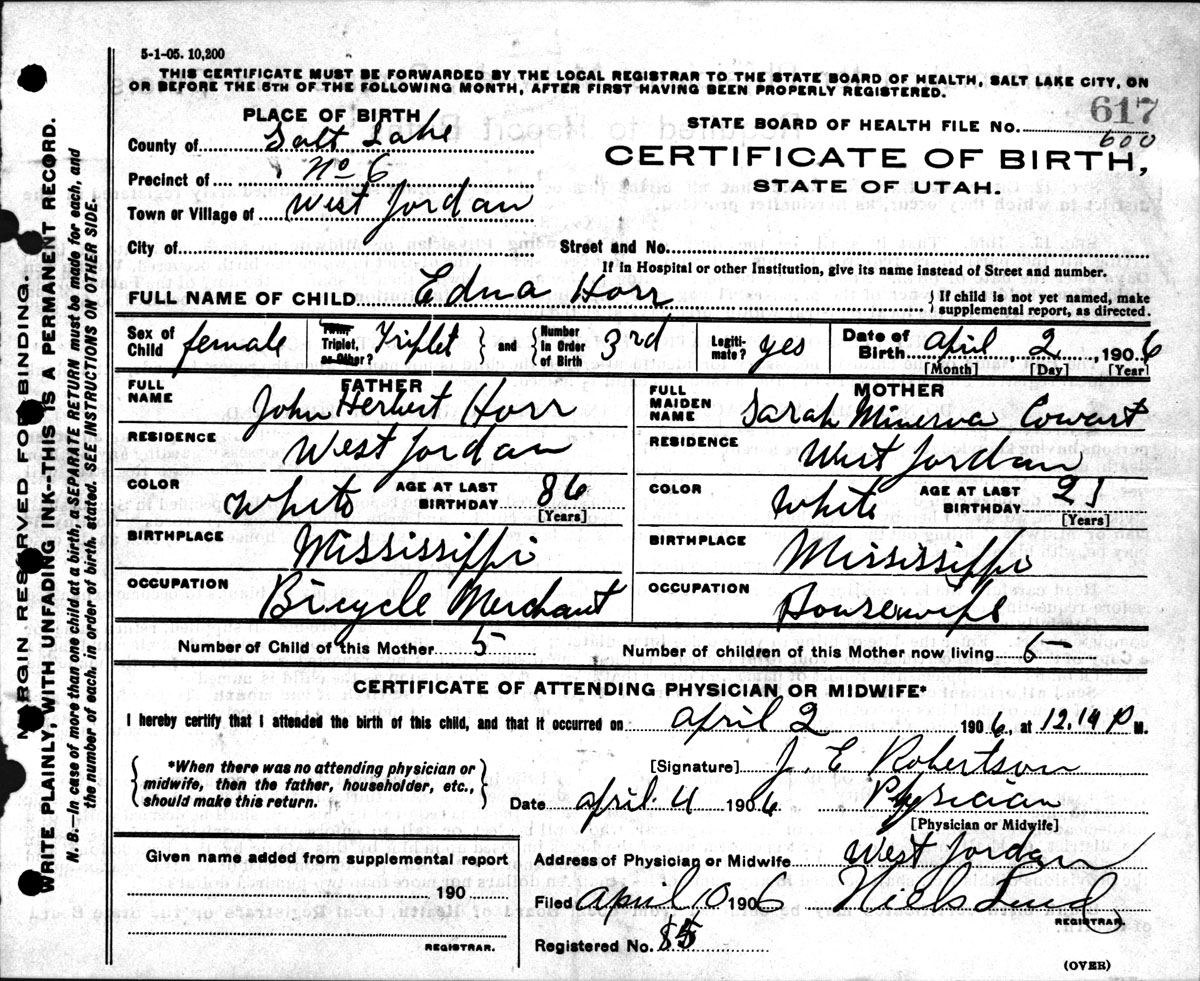 5-1-05. 10,200
THIS CERTIFICATE MUST BE FORWARDED BY THE LOCAL REGISTRAR TO THE STATE BOARD OF HEALTH, SALT LAKE CITY, ON
OR BEFORE THE 5TH OF THE FOLLOWING MONTH, AFTER FIRST HAVING BEEN PROPERLY REGISTERED.
617
PLACE OF BIRTH
STATE BOARD OF HEALTH FILE NO.
600
County of Salt Lake
CERTIFICATE OF BIRTH,
STATE OF UTAH.
Precinct of No 6
Town or Village of West Jordan
City of Street and No.
If in Hospital or other Institution, give its name instead of Street and number.
FULL NAME OF CHILD Edna Horr { If child is not yet named, make
supplemental report, as directed.
Sex of Child female Twin, Triplet, as Other? Triplet } and { Number in Order of Birth 3rd Legiti-mate? yes Date of Birth April, 2, 1906
[Month] [Day] [Year]
FATHER MOTHER
FULL NAME John Herbert Horr FULL MAIDEN NAME Sarah Minerva Cowart
RESIDENCE West Jordan RESIDENCE West Jordan
COLOR White AGE AT LAST BIRTHDAY 36 [Years] COLOR White AGE AT LAST BIRTHDAY 21 [Years]
BIRTHPLACE Mississippi BIRTHPLACE Mississippi
OCCUPATION Bicycle Merchant OCCUPATION Housewife
Number of Child of this Mother 5 Number of children of this Mother now living 5
CERTIFICATE OF ATTENDING PHYSICIAN OR MIDWIFE*
I hereby certify that I attended the birth of this child, and that it occurred on April 2 1906, at 12.14 P M.
{ *When there was no attending physician or
midwife, then the father, householder, etc.,
should make this return. }
[Signature] J. E Robertson
Date April. 4 1906 Physician
[Physician or Midwife]
Given name added from supplemental report
190
REGISTRAR.
Address of Physician or Midwife West Jordan
Filed April 10 1906 Niels Lind
REGISTRAR.
Registered No. 85
(OVER)
MARGIN RESERVED FOR BINDING.
WRITE PLAINLY, WITH UNFADING INK--THIS IS A PERMANENT RECORD.
N. B.--In case of more than one child at a birth, a SEPARATE RETURN must be made for each, and
the number of each, in order of birth, stated. SEE INSTRUCTIONS ON OTHER SIDE.